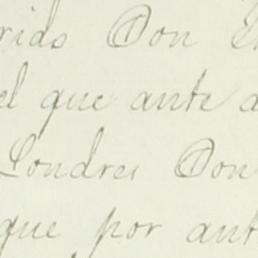 rido Don
el que ante a
Londres Don
que por ant